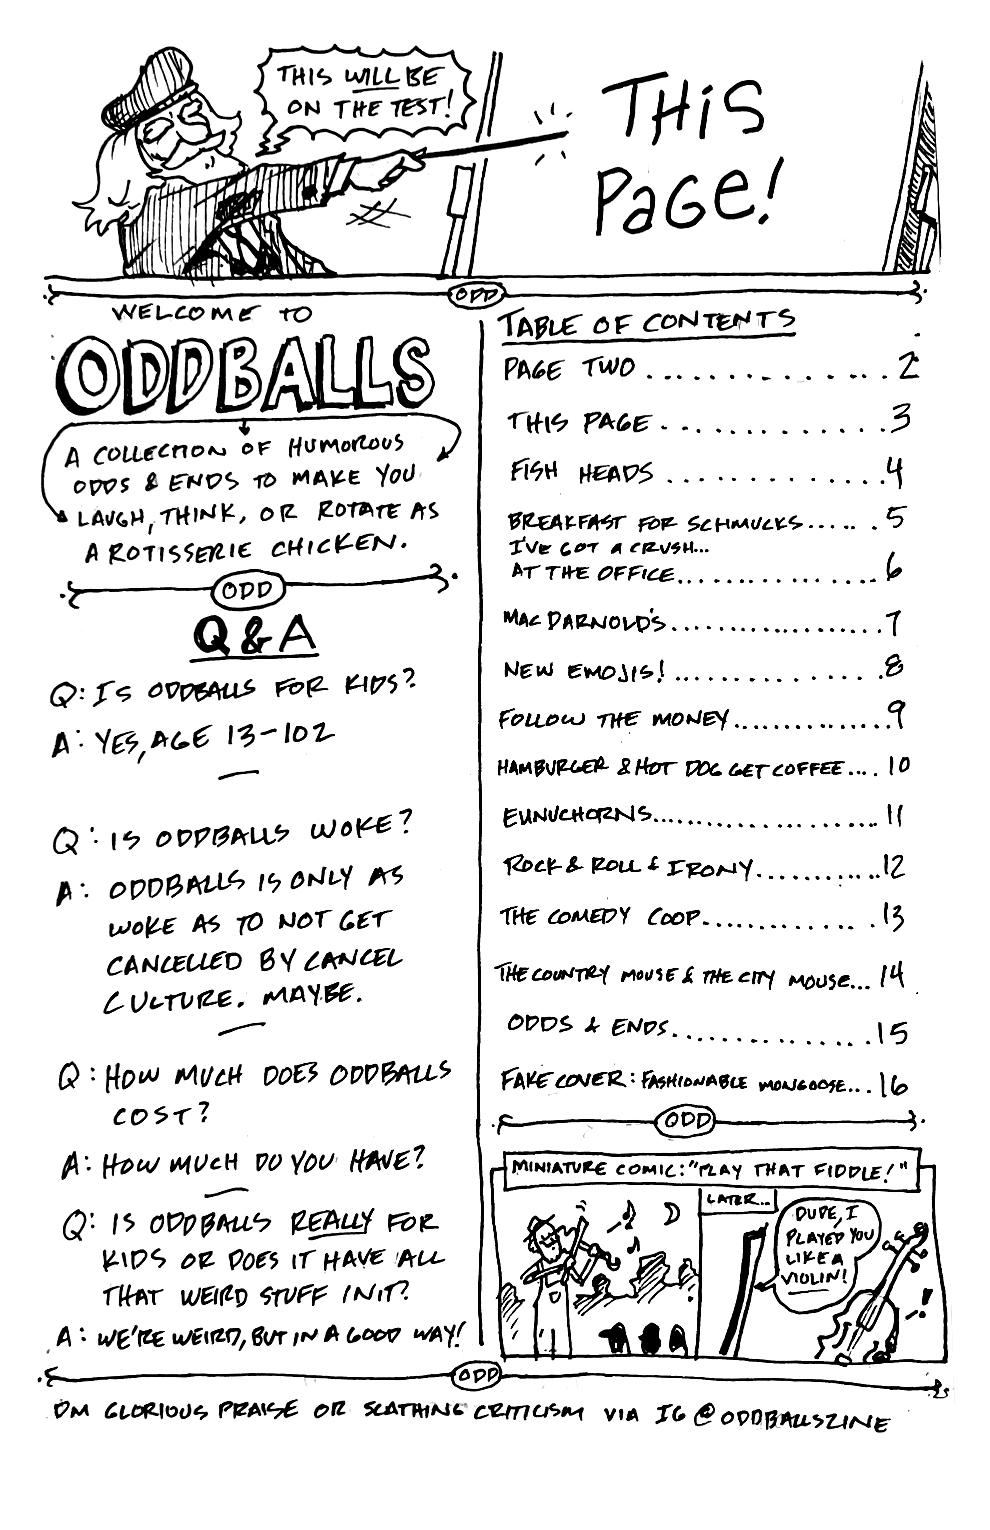 THIS WILL BE
ON THE TEST!
THIS
PAGE!
ODD
WELCOME TO
ODDBALLS
A COLLECTION OF HUMOROUS
ODDS & ENDS TO MAKE YOU
LAUGH, THINK, OR ROTATE AS
A ROTISSERIE CHICKEN.
ODD
Q & A
Q: IS ODDBALLS FOR KIDS?
A: YES, AGE 13-102
Q: IS ODDBALLS WOKE?
A: ODDBALLS IS ONLY AS
WOKE AS TO NOT GET
CANCELLED BY CANCEL
CULTURE. MAYBE.
Q: HOW MUCH DOES ODDBALLS
COST?
A: HOW MUCH DO YOU HAVE?
Q: IS ODDBALLS REALLY FOR
KIDS OR DOES IT HAVE ALL
THAT WEIRD STUFF IN IT?
A: WE'RE WEIRD, BUT IN A GOOD WAY!
TABLE OF CONTENTS
PAGE TWO .............. 2
THIS PAGE .............. 3
FISH HEADS .............. 4
BREAKFAST FOR SCHMUCKS...... 5
I'VE GOT A CRUSH...
AT THE OFFICE................ 6
MAC DARNOLD'S................... 7
NEW EMOJIS! .............. 8
FOLLOW THE MONEY.............. 9
HAMBURGER & HOT DOG GET COFFEE.... 10
EUNUCHORNS...................... 11
ROCK & ROLL & IRONY............ 12
THE COMEDY COOP.............. 13
THE COUNTRY MOUSE & THE CITY MOUSE... 14
ODDS & ENDS................ 15
FAKE COVER: FASHIONABLE MONGOOSE... 16
ODD
MINIATURE COMIC: "PLAY THAT FIDDLE!"
LATER...
DUDE, I
PLAYED YOU
LIKE A
VIOLIN!
!
ODD
DM GLORIOUS PRAISE OR SCATHING CRITICISM VIA IG @ODDBALLSZINE